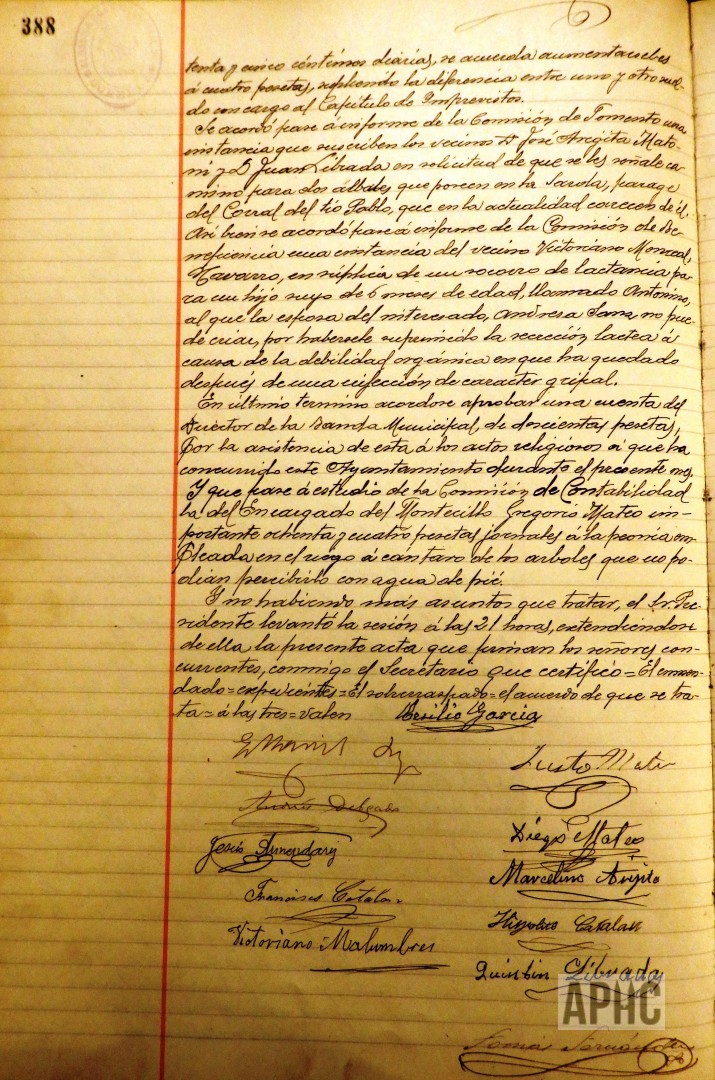 388
tenta y cinco céntimos diarios, se acuerda aumentarselos
á cuatro pesetas, supliendo la diferencia entre uno y otro suel-
do con cargo al Capítulo de Imprevistos.
Se acordó pase á informe de la Comisión de Fomento una
instancia que suscriben los vecinos D. José Arigita Mato-
ni y D. Juan Librada en solicitud de que se les señale ca-
mino para dos que poseen en la paraje
del Corral del tío Pablo, que en la actualidad carecen de él.
Asi bien se acordó pase á informe de la Comisión de Be-
neficencia una instancia del vecino Victoriano Monreal
Navarro, en súplica de un socorro de lactancia pa-
ra un hijo suyo de 6 meses de edad, llamado Antonino,
al que la esposa del interesado, Andresa Sanz no pue-
de criar, por habersele suprimido la secreción lactea á
causa de la debilidad orgánica en que ha quedado
después de una infección de caracter gripal.
En último termino acordose aprobar una cuenta del
Director de la Banda Municipal, de doscientas pesetas,
por la asistencia de esta á los actos religiosos á que ha
concurrido este Ayuntamiento durante el presente mes.
Y que pase á estudio de la Comisión de Contabilidad
la del Encargado del Montecillo Gregorio Mateo im-
portante ochenta y cuatro pesetas jornales á la peonía em-
pleada en el riego á cántaro de los arboles que no po-
dian percibirlo con agua de pié.
Y no habiendo más asuntos que tratar, el Sr. Pre-
sidente levantó la sesión á las 21 horas, extendiendose
de ella la presente acta que firman los señores con-
currentes, conmigo el Secretario que certificó = El enmen-
dado = = El sobrerraspado = el acuerdo de que se tra-
ta = á las tres = valen
Basilio Garcia
Justo Mateo
Andrés Delgado
Diego Mateo
Jesús Armendariz
Marcelino Arigita
Francisco Catalan
Hipolito Catalan
Victoriano Malumbres
Quintin Librada
APHC
Tomás Fernández